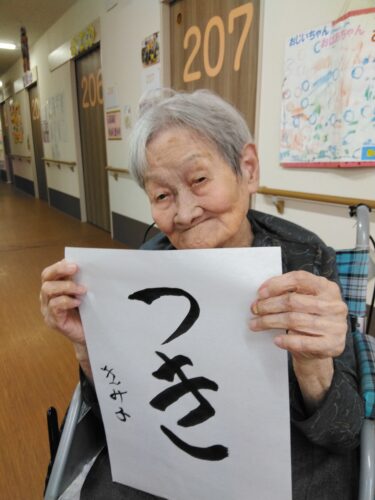 つき
きみよ
207
206
おじいちゃん
おばあちゃん